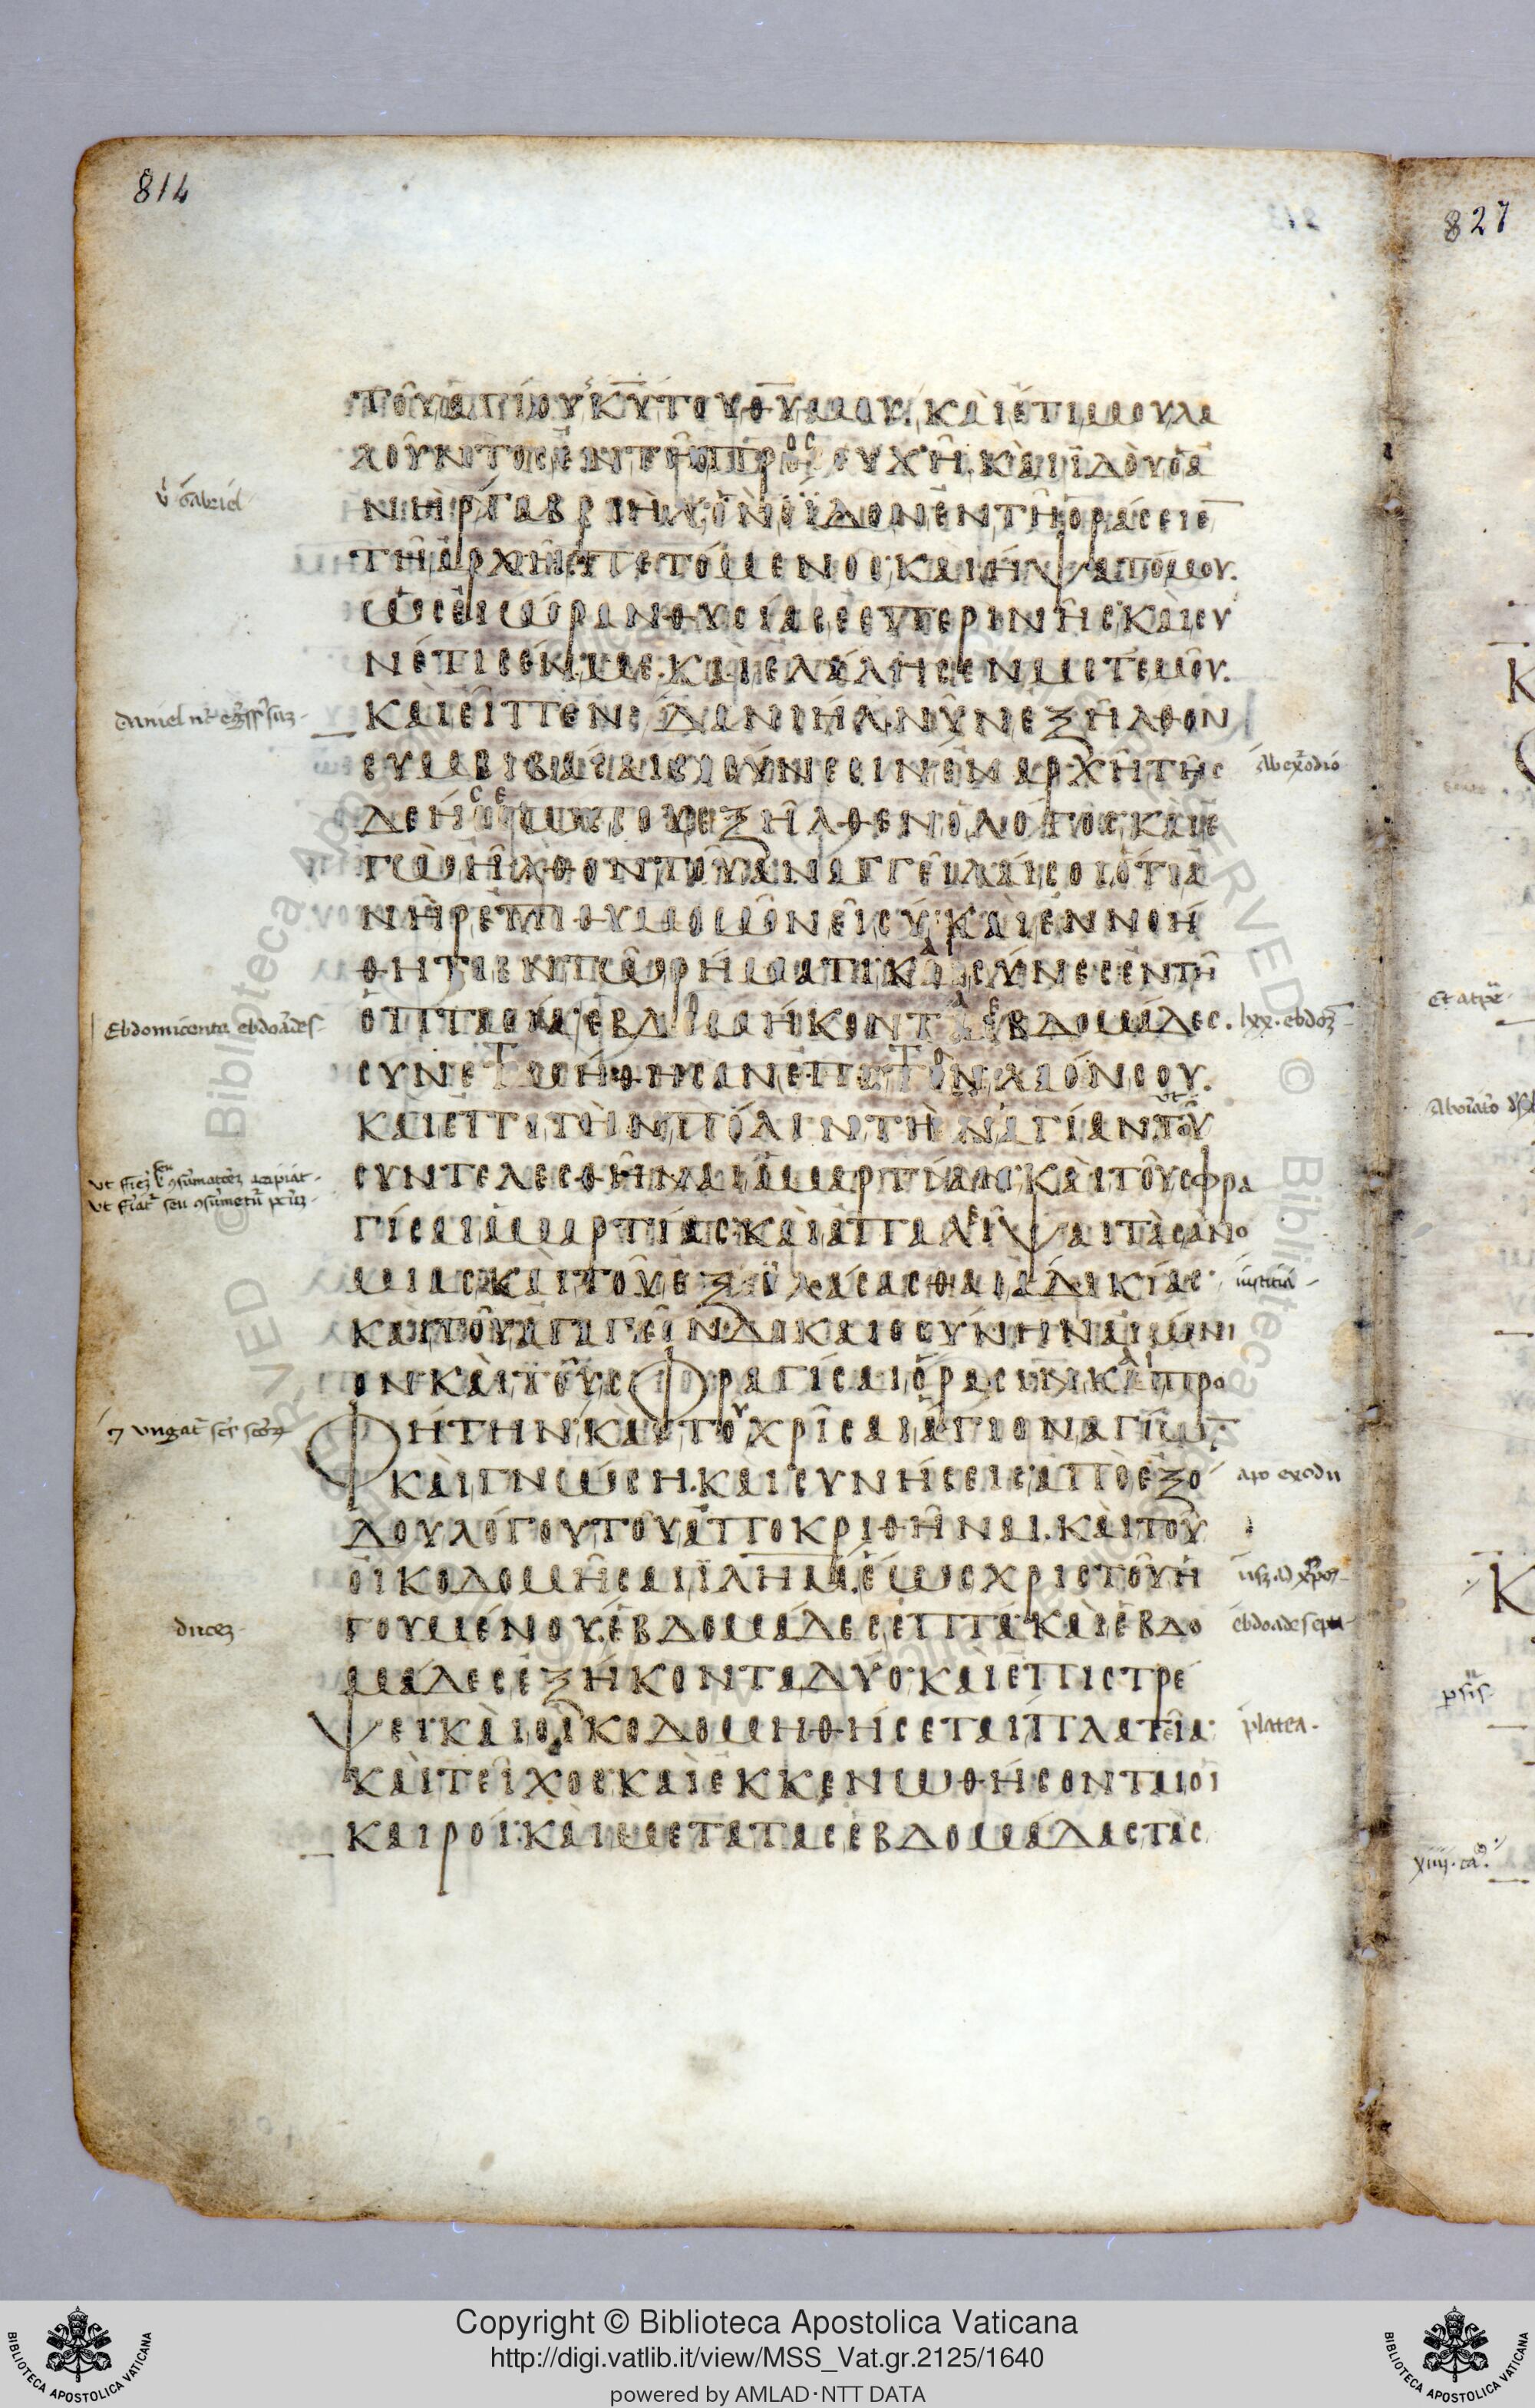 814
827
ΤΟΥΑΓΙΟΥΚΥΤΟΥΘΥΜΟΥ·ΚΑΙΕΤΙΜΟΥΛΑ
ΛΟΥΝΤΟΣΕΝΤΗΠΡΟΣΕΥΧΗ·ΚΑΙΙΔΟΥΟΑ
ΝΗΡΓΑΒΡΙΗΛΟΝΕΙΔΟΝΕΝΤΗΟΡΑΣΕΙΕ
ΤΗΑΡΧΗΠΕΤΟΜΕΝΟΣΚΑΙΗΨΑΤΟΜΟΥ·
ΩΣΕΙΩΡΑΝΘΥΣΙΑΣΕΣΠΕΡΙΝΗΣΚΑΙΣΥ
ΝΕΤΙΣΕΝΜΕ·ΚΑΙΕΛΑΛΗΣΕΝΜΕΤΕΜΟΥ·
ΚΑΙΕΙΠΕΝ·ΔΑΝΙΗΛ·ΝΥΝΕΞΗΛΘΟΝ
ΣΥΜΒΙΒΑΣΑΙΣΕΣΥΝΕΣΙΝΕΝΑΡΧΗΤΗΣ
ΔΕΗΣΕΩΣΣΟΥΕΞΗΛΘΕΝΟΛΟΓΟΣΚΑΙΕ
ΓΩΗΛΘΟΝΤΟΥΑΝΑΓΓΕΙΛΑΙΣΟΙΟΤΙΑ
ΝΗΡΕΠΙΘΥΜΙΩΝΕΙΣΥ·ΚΑΙΕΝΝΟΗ
ΘΗΤΙΕΝΤΩΡΗΜΑΤΙΚΑΙΣΥΝΕΣΕΝΤΗ
ΟΠΤΑΣΙΑΕΒΔΟΜΗΚΟΝΤΑΕΒΔΟΜΑΔΕΣ·
ΣΥΝΕΤΜΗΘΗΣΑΝΕΠΙΤΟΝΛΑΟΝΣΟΥ·
ΚΑΙΕΠΙΤΗΝΠΟΛΙΝΤΗΝΑΓΙΑΝΤΟΥ
ΣΥΝΤΕΛΕΣΘΗΝΑΙΑΜΑΡΤΙΑΣΚΑΙΤΟΥΣΦΡΑ
ΓΙΣΑΙΑΜΑΡΤΙΑΣΚΑΙΑΠΑΛΕΙΨΑΙΤΑΣΑΝΟ
ΜΙΑΣΚΑΙΤΟΥΕΞΙΛΑΣΑΣΘΑΙΑΔΙΚΙΑΣ·
ΚΑΙΤΟΥΑΓΑΓΕΙΝΔΙΚΑΙΟΣΥΝΗΝΑΙΩΝΙ
ΟΝΚΑΙΤΟΥΣΦΡΑΓΙΣΑΙΟΡΑΣΙΝΚΑΙΠΡΟ
ΦΗΤΗΝΚΑΙΤΟΥΧΡΙΣΑΙΑΓΙΟΝΑΓΙΩΝ
ΚΑΙΓΝΩΣΗ·ΚΑΙΣΥΝΗΣΕΙΣΑΠΟΕΞΟ
ΔΟΥΛΟΓΟΥΤΟΥΑΠΟΚΡΙΘΗΝΑΙ·ΚΑΙΤΟΥ
ΟΙΚΟΔΟΜΗΣΑΙΙΛΗΜΕΩΣΧΡΙΣΤΟΥΗ
ΓΟΥΜΕΝΟΥΕΒΔΟΜΑΔΕΣΕΠΤΑΚΑΙΕΒΔΟ
ΜΑΔΕΣΕΞΗΚΟΝΤΑΔΥΟ·ΚΑΙΕΠΙΣΤΡΕ
ΨΕΙΚΑΙΟΙΚΟΔΟΜΗΘΗΣΕΤΑΙΠΛΑΤΕΙΑ·
ΚΑΙΤΕΙΧΟΣΚΑΙΕΚΚΕΝΩΘΗΣΟΝΤΑΙΟΙ
ΚΑΙΡΟΙ·ΚΑΙΜΕΤΑΤΑΣΕΒΔΟΜΑΔΑΣΤΑΣ
Gabriel
Ab exodio
Ebdomicenta
lxx·
iustitia
apo exodu
platea
Copyright © Biblioteca Apostolica Vaticana
http://digi.vatlib.it/view/MSS_Vat.gr.2125/1640
powered by AMLAD·NTT DATA
BIBLIOTECA APOSTOLICA VATICANA
BIBLIOTECA APOSTOLICA VATICANA